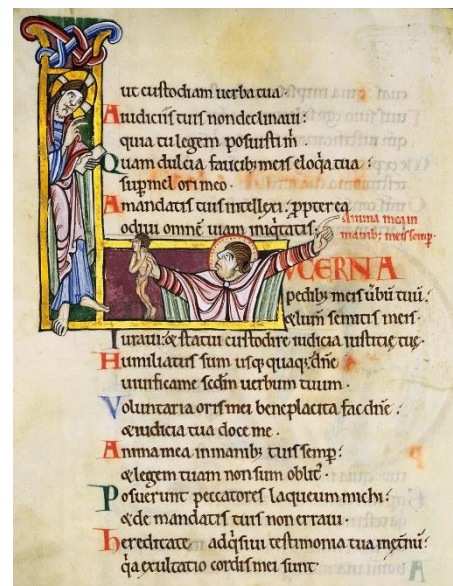 ut custodiam uerba tua·
A iudiciis tuis non declinaui:
quia tu legem posuisti m̄·
Quam dulcia faucib; meis eloq̄a tua
sup̄ mel ori meo·
A mandatis tuis intellexi: ꝓpterea
odiui omnē uiam iniq̄tatis·
Anima mea in
manib; meis semp̄·
LUCERNA
pedib; meis ūbū tuū:
& lum̄ semitis meis·
Iuraui: & statui custodire iudicia iustitię tuę·
Humiliatus sum usq; quaq; dn̄e
uiuificame scd̄m uerbum tuum·
Voluntaria oris mei beneplacita fac dn̄e:
& iudicia tua doce me·
Anima mea in manib; tuis semp̄:
& legem tuam non sum oblit᷒·
Posuerunt peccatores laqueum michi:
& de mandatis tuis non erraui·
hereditate adq̄siui testimonia tua inet̄nū:
q̄a exultatio cordis mei sunt·